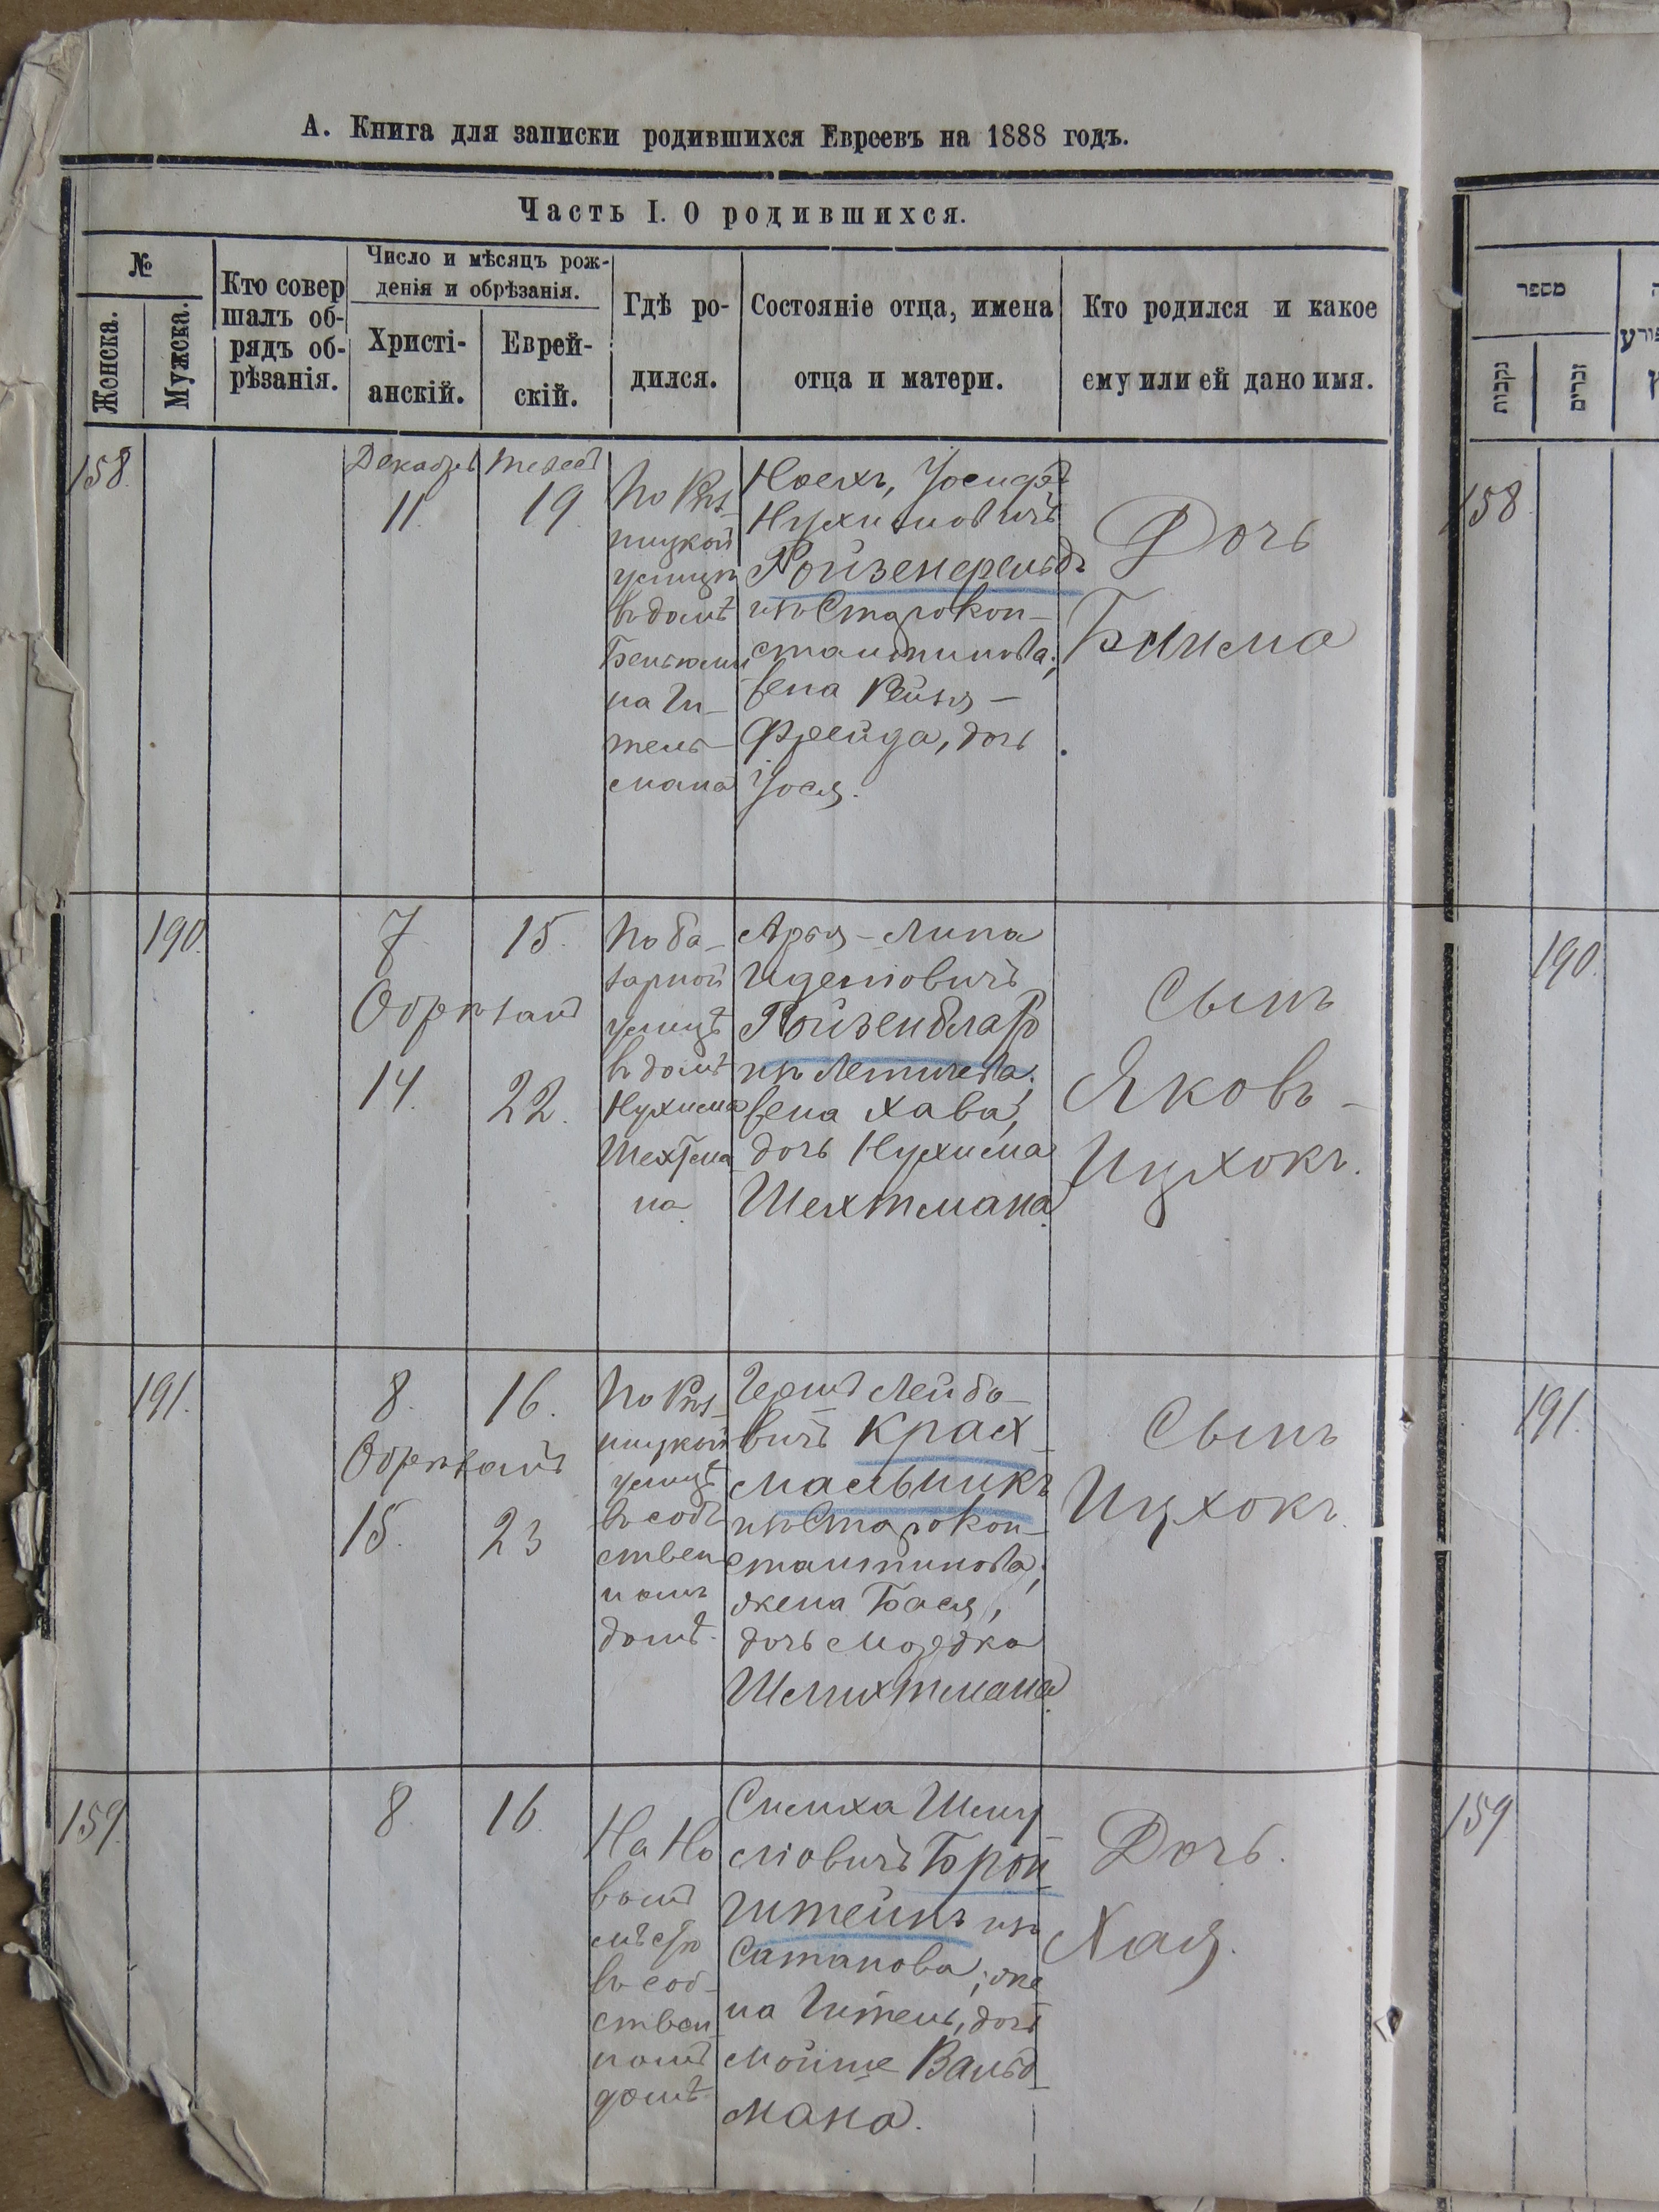 А. Книга для записки родившихся Евреевъ на 1888 годъ.
Часть I. О родившихся.
№
Женска.
Мужска.
Кто совер
шалъ об-
рядъ об-
рѣзанія.
Число и мѣсяцъ рож-
денія и обрѣзанія.
Христі-
анскій.
Еврей-
скій.
Гдѣ ро-
дился.
Состояніе отца, имена
отца и матери.
Кто родился и какое
ему или ей дано имя.
מספר
נקבות
זכרים
158.
Декабрь
11.
19.
улицѣ
въ домѣ
на Ги-
тель-
смана
Іосифъ
Нухимовичъ
Ройзенфельдъ
изъ Старокон-
стантинова;
жена Рейзя-
Фрейда, дочь
Іося.
Дочь
158
190.
7
15.
Обрѣзанъ
14.
22.
По ба-
зарной
улицѣ
въ домѣ
Нухима
Шехтма
на.
Арья-Липа
Иделіовичъ
Ройзенблатъ
изъ Летичева;
жена Хава,
дочь Нухима
Шехтмана.
Сынъ
Яковъ-
Ицхокъ.
190.
191.
8.
16.
Обрѣзанъ
15.
23
улицѣ
въ соб-
ствен
номъ
домѣ.
Гершъ Лейбо-
вичъ Крах-
мальникъ
изъ Старокон-
стантинова;
жена Бася,
дочь Мордка
Шлихтмана.
Сынъ
Ицхокъ.
191.
159.
8.
16.
На Но
вомъ
мѣстѣ
въ соб-
ствен-
номъ
домѣ.
Симха Шму
ліовичъ Брон-
штейнъ изъ
Сатанова; же
на Гитель, дочь
Мойше Вальд-
мана.
Дочь.
Хая.
159